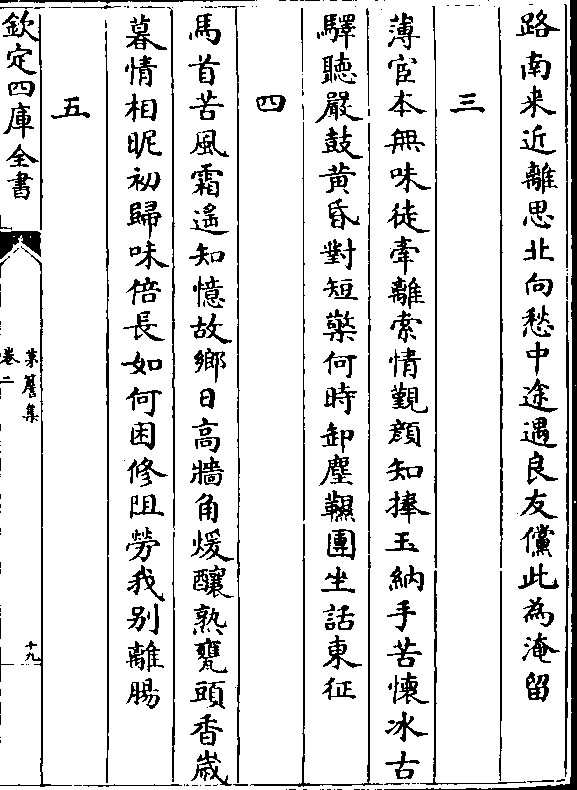 路南来近離思北向愁中途遇良友儻此為淹留
三
薄宦本無味徒牽離索情覿顔知捧玉納手苦懐冰古
驛聽嚴鼓黄昏對短檠何時卸塵鞿團坐話東征
四
馬首苦風霜遙知憶故鄉日高牆角煖釀熟甕頭香嵗
暮情相昵初歸味倍長如何困修阻勞我别離腸
五
欽定四庫全書
卷二
十九